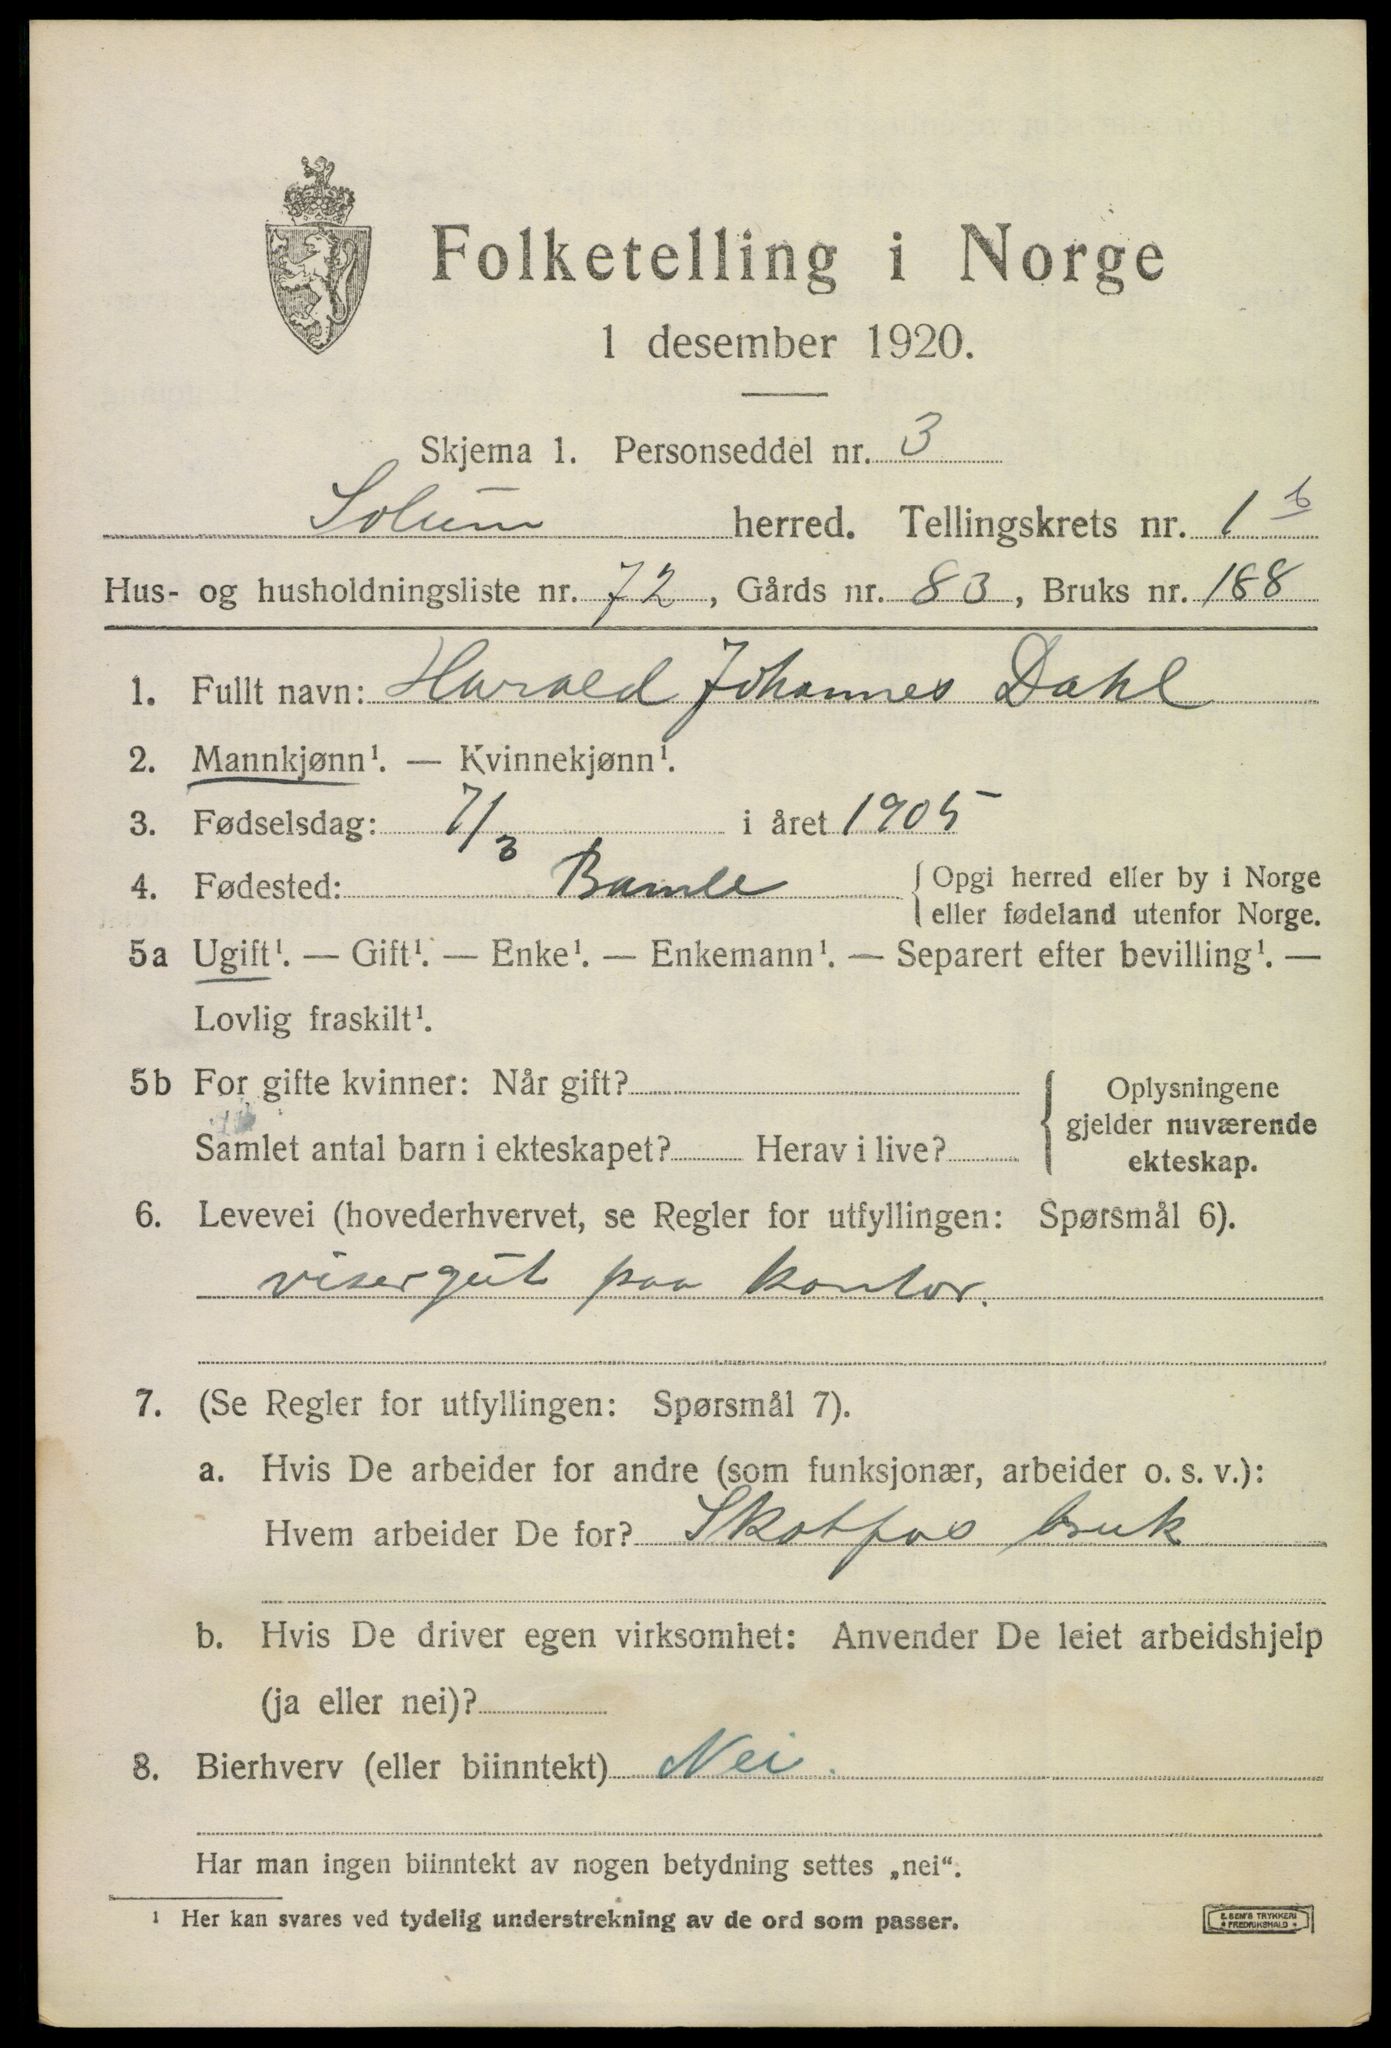 Folketelling i Norge
1 desember 1920.
Skjema 1. Personseddel nr. 3
Solum herred. Tellingskrets nr. 1 b
Hus- og husholdningsliste nr. 72, Gårds nr. 83, Bruks nr. 188
1. Fullt navn: Harald Johannes Dahl
2. Mannkjønn¹. — Kvinnekjønn¹.
3. Fødselsdag: 7/3 i året 1905
4. Fødested: Bamle { Opgi herred eller by i Norge
eller fødeland utenfor Norge.
5a Ugift¹. — Gift¹. — Enke¹. — Enkemann¹. — Separert efter bevilling¹. —
Lovlig fraskilt¹.
5b For gifte kvinner: Når gift?
Samlet antal barn i ekteskapet? Herav i live?
{ Oplysningene
gjelder nuværende
ekteskap.
6. Levevei (hovederhvervet, se Regler for utfyllingen: Spørsmål 6).
visergut paa kontor.
7. (Se Regler for utfyllingen: Spørsmål 7).
a. Hvis De arbeider for andre (som funksjonær, arbeider o. s. v.):
Hvem arbeider De for? Skotfos bruk
b. Hvis De driver egen virksomhet: Anvender De leiet arbeidshjelp
(ja eller nei)?
8. Bierhverv (eller biinntekt) Nei.
Har man ingen biinntekt av nogen betydning settes „nei“.
¹ Her kan svares ved tydelig understrekning av de ord som passer.
E. SEM'S TRYKKERI
FREDRIKSHALD